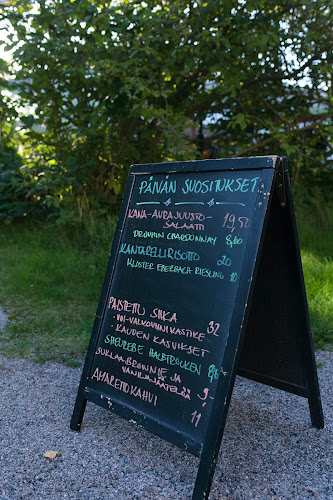 PÄIVÄN SUOSITUKSET
KANA-AURAJUUSTO-
SALAATTI 19,50
DROUHIN CHARDONNAY 8,60
KANTARELLIRISOTTO 20
KLOSTER EBERBACH RIESLING 10
PAISTETTU SIIKA 32
• VOI-VALKOVIINIKASTIKE
• KAUDEN KASVIKSET
SHEUREBE HALBTROCKEN 8,6
SUKLAABROWNIE JA
VANILJAJÄÄTELÖÄ 9-
AMARETTOKAHVI 11